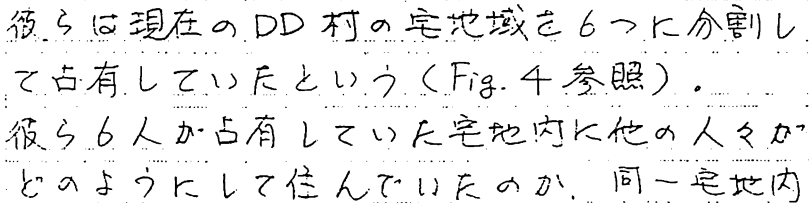 彼らは現在のDD村の宅地域を6つに分割し
て占有していたという（Fig. 4参照）。
彼ら6人が占有していた宅地内に他の人々が
どのようにして住んでいたのか、同一宅地内